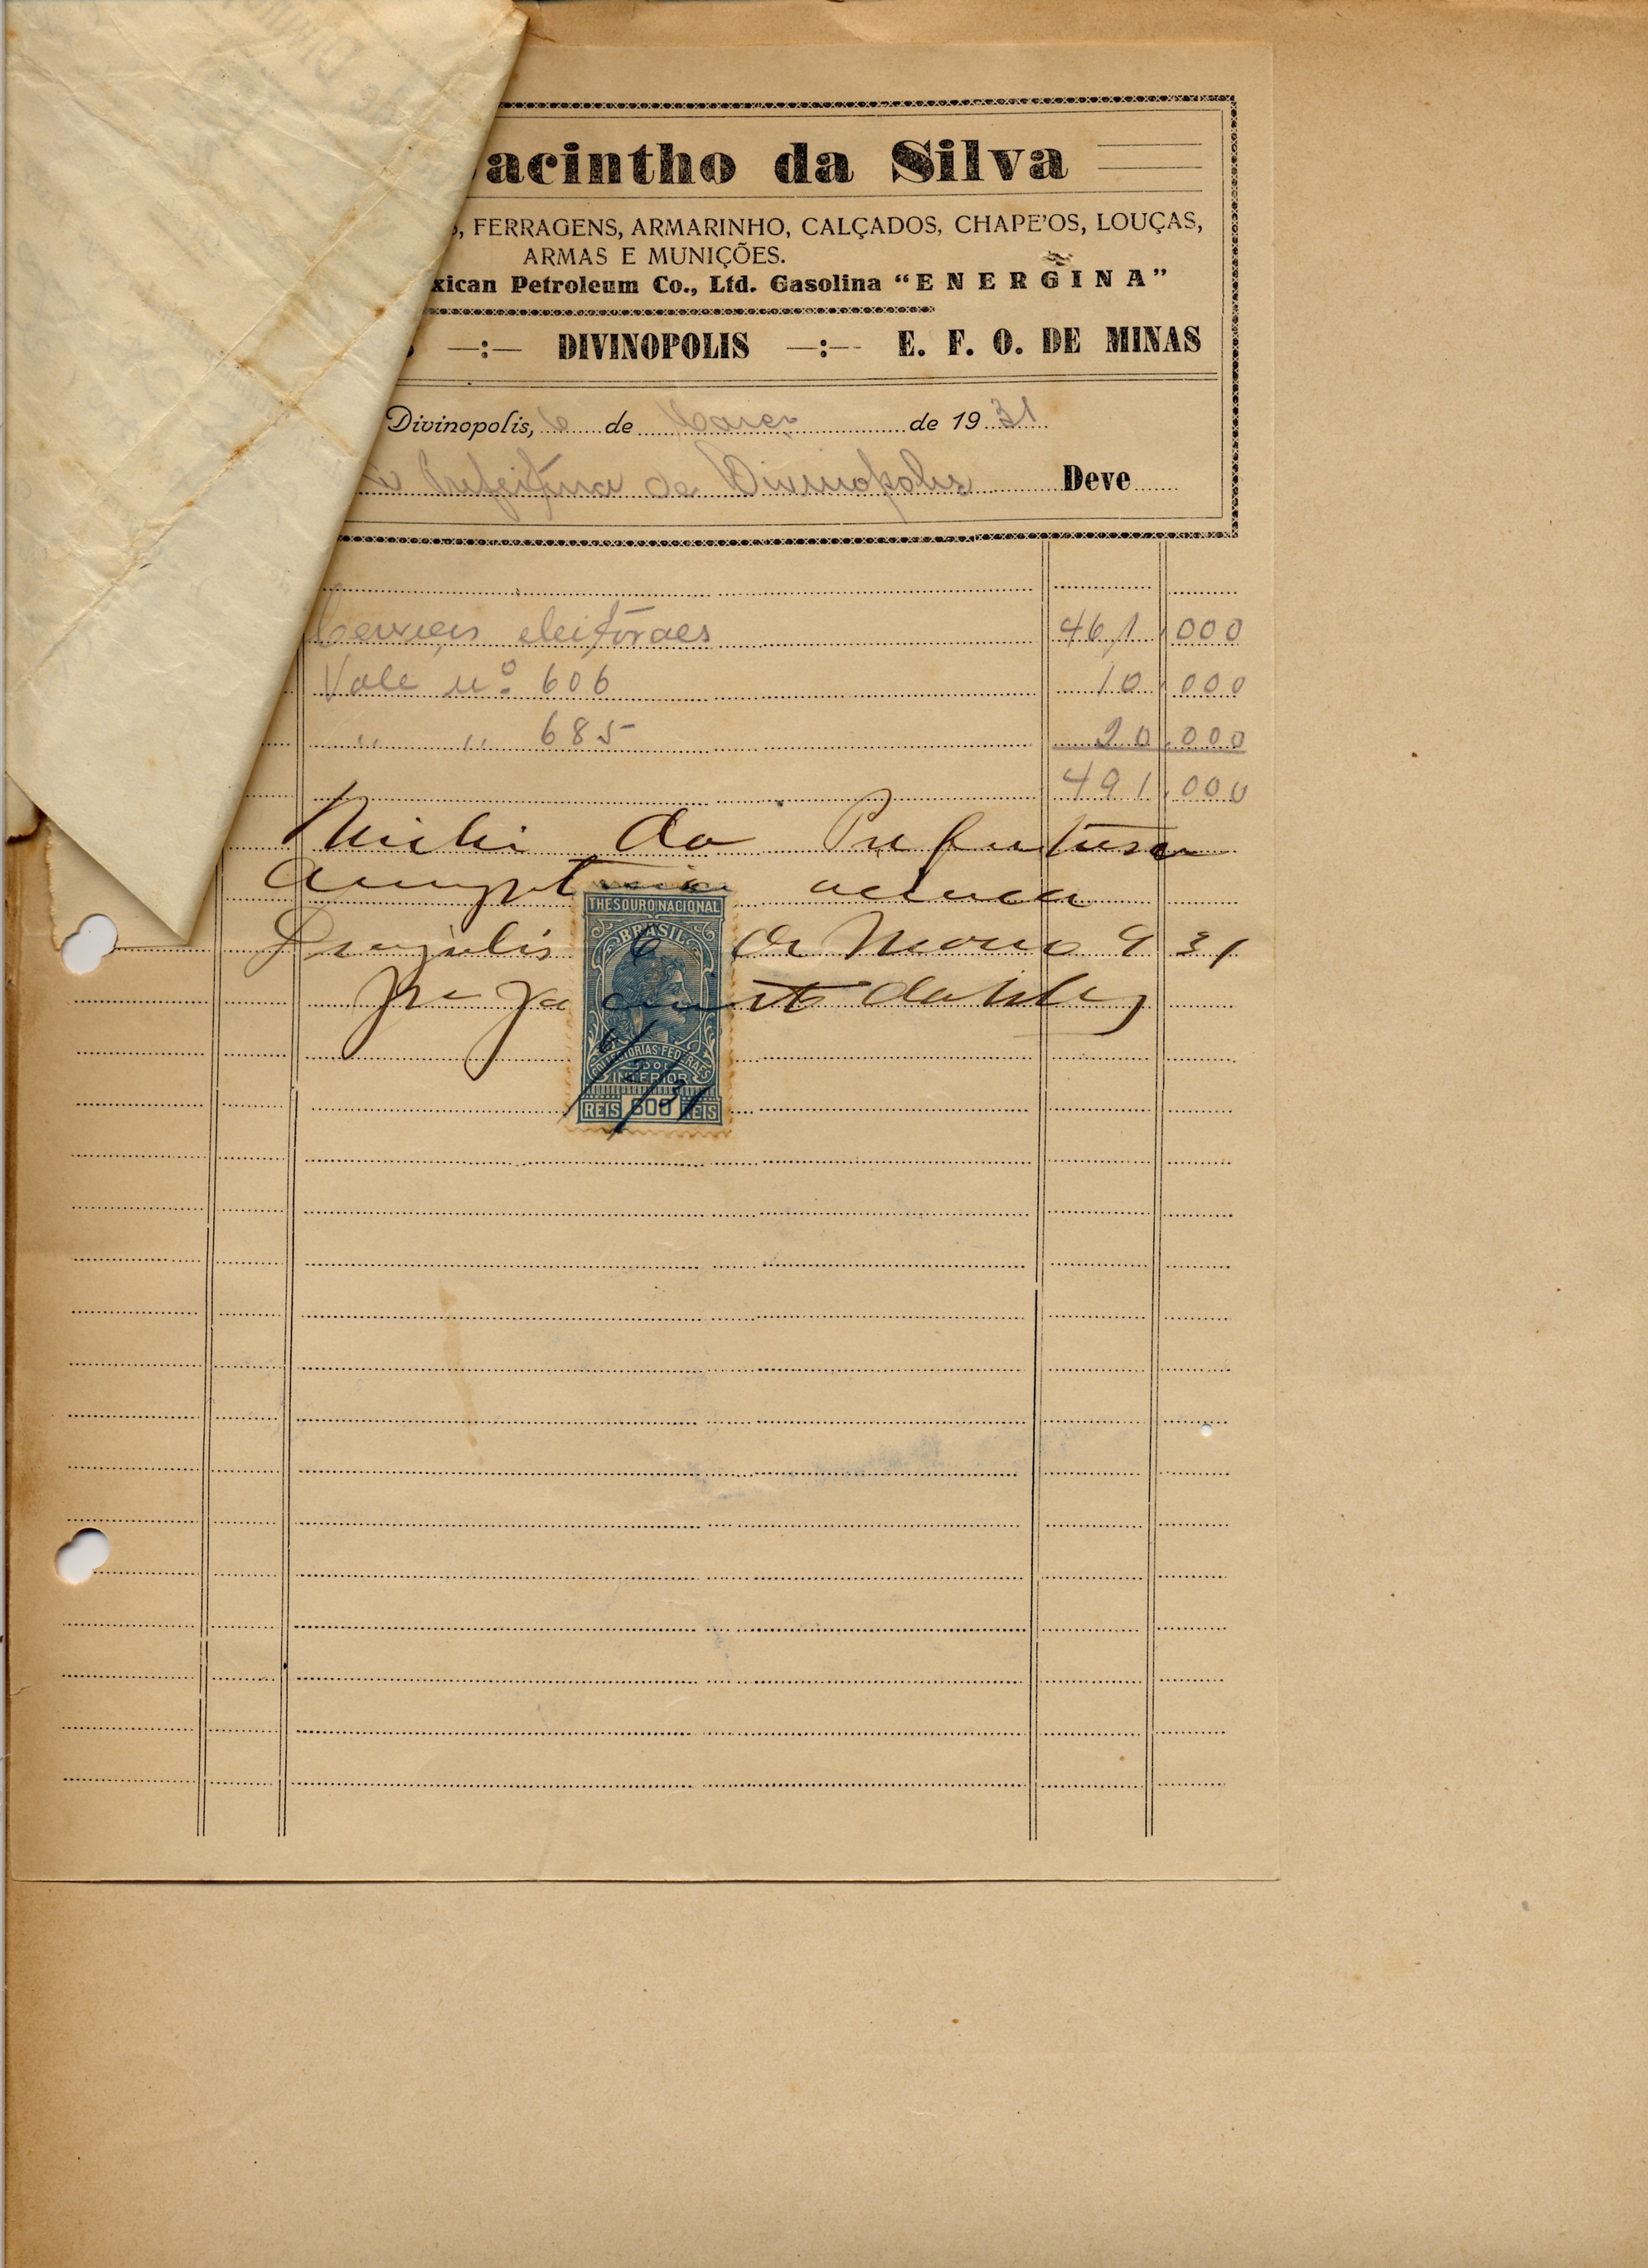 acintho da Silva
, FERRAGENS, ARMARINHO, CALÇADOS, CHAPE'OS, LOUÇAS,
ARMAS E MUNIÇÕES.
xican Petroleum Co., Ltd. Gasolina "ENERGINA"
—:— DIVINOPOLIS —:— E. F. O. DE MINAS
Divinopolis, 6 de Março de 1931
Prefeitura de Divinopolis Deve
eleitoraes 461.000
Vale nº 606 10.000
" " 685 20.000
491.000
da Prefeitura
acima
6 de Março 931
Jacinto da Silva
THESOURO NACIONAL
BRASIL
COLLECTORIAS FEDERAES
DO
INTERIOR
REIS 600 REIS
6/3/31